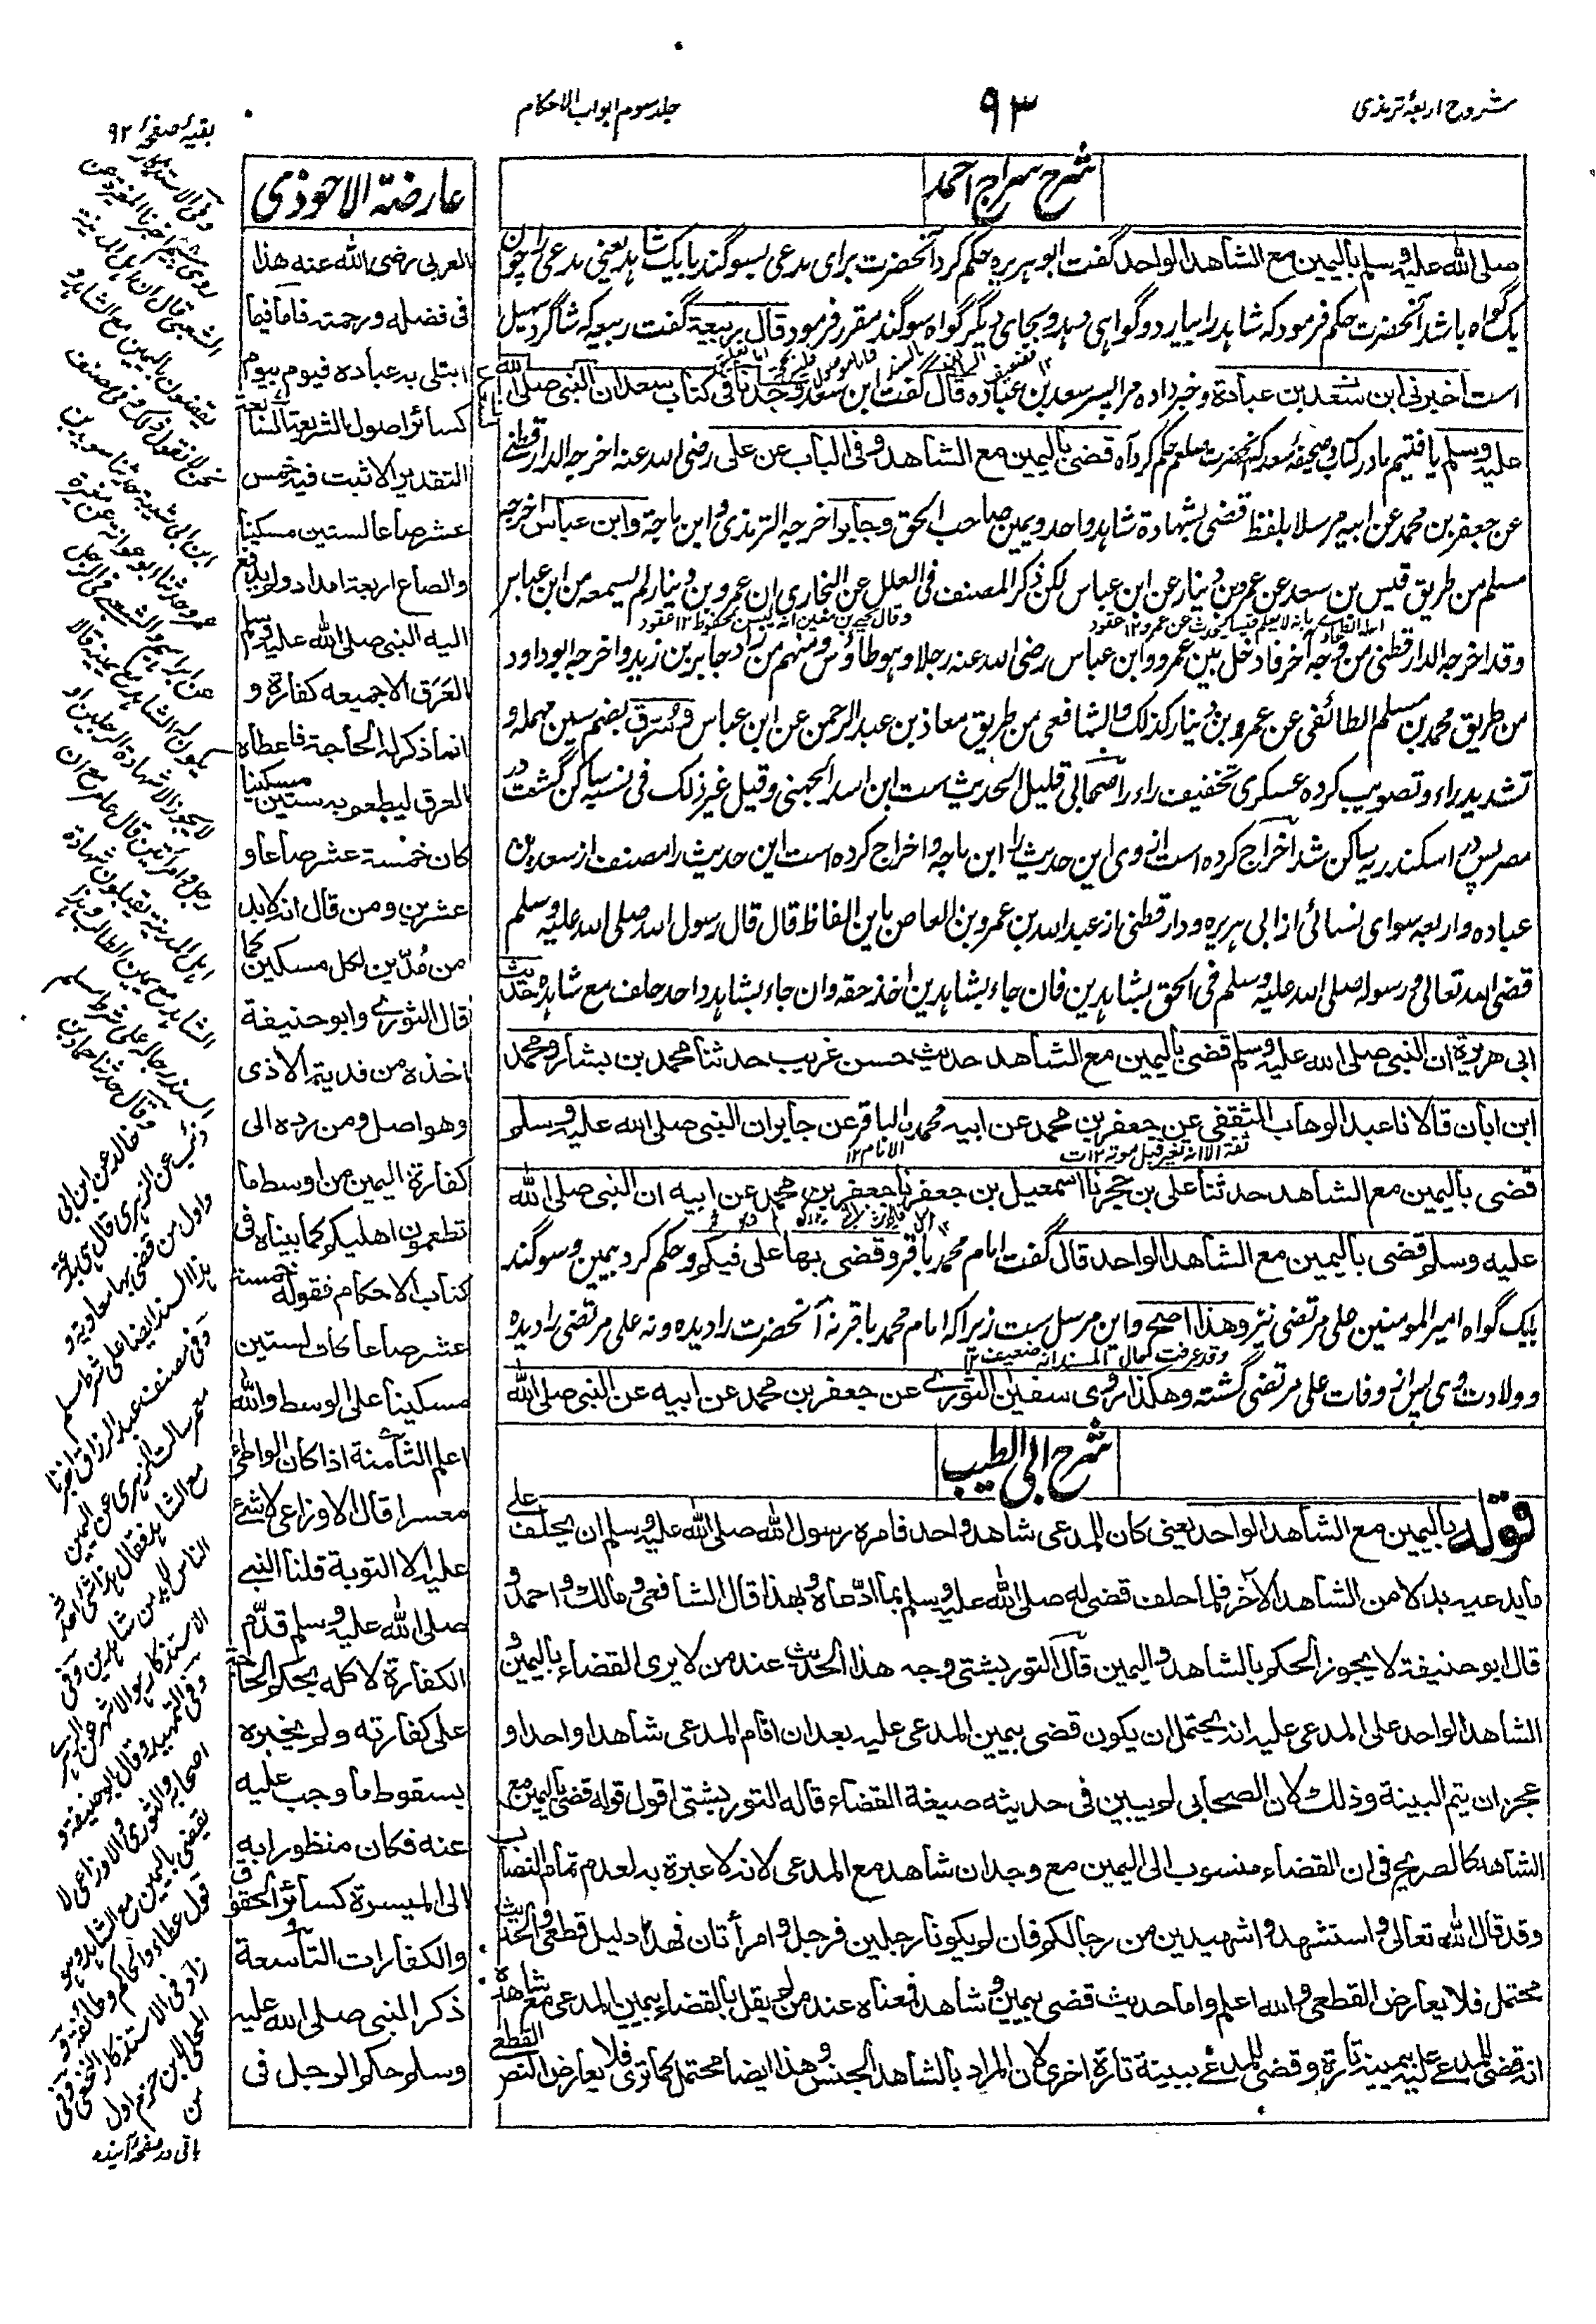 شروح اربعۂ ترمذی
۹۳
جلد سوم ابواب الاحکام
شرح سراج احمد
صلی الله علیه وسلم بالیمین مع الشاهد الواحد گفت ابو ہریرہ حکم کرد آنحضرت برای مدعی بسوگند با یک شاہد یعنی مدعی را چون
یک گواہ باشد آنحضرت حکم فرمود کہ شاہد را بیارد و گواہی دہد و بجای دیگر گواہ سوگند مقرر فرمود قال ربیعة گفت ربیعہ کہ شاگرد سہیل
است اخبرنی ابن سعد بن عبادة و خبر دادہ مرا پسر سعد بن عبادہ قال گفت ابن سعد وجدنا فی کتاب سعد ان النبی صلی الله
علیہ وسلم یافتیم ما در کتاب و صحیفۂ سعد کہ آنحضرت صلعم حکم کرد آہ قضی بالیمین مع الشاهد و فی الباب عن علی رضی الله عنہ اخرجہ الدارقطنی
عن جعفر بن محمد عن ابیہ مرسلا بلفظ قضی بشہادة شاہد واحد و یمین صاحب الحق و جابر اخرجہ الترمذی و ابن ماجة و ابن عباس اخرجہ
مسلم من طریق قیس بن سعد عن عمرو بن دینار عن ابن عباس لکن ذکر المصنف فی العلل عن البخاری ان عمرو بن دینار لم یسمعہ من ابن عباس
وقال یحیی بن معین انہ لیس بمحفوظ ۱۲ عقود
وقد اخرجہ الدارقطنی من وجہ آخر فادخل بین عمرو و ابن عباس رضی الله عنہ رجلا و هو طاؤس و منهم من زاد جابر بن زید و اخرجہ ابو داود
من طریق محمد بن مسلم الطائفی عن عمرو بن دینار کذلک و الشافعی من طریق معاذ بن عبد الرحمن عن ابن عباس و سُرَّق بضم سین مہملہ و
تشدید راء و تصویب کردہ عسکری تخفیف راء را صحابی قلیل الحدیث ست ابن اسد الجہنی و قیل غیر ذلک فی نسبہ ساکن گشت در
مصر پس در اسکندریہ ساکن شد اخراج کردہ است از وی این حدیث را ابن ماجہ و اخراج کردہ است این حدیث را مصنف از سعد بن
عبادہ و اربعہ سوای نسائی از ابی ہریرہ و دارقطنی از عبد الله بن عمرو بن العاص باین الفاظ قال قال رسول الله صلی الله علیہ وسلم
قضی الله تعالی و رسولہ صلی الله علیہ وسلم فی الحق بشاہدین فان جاء بشاہدین اخذ حقہ و ان جاء بشاہد واحد حلف مع شاہدہ حدیث
ابی هریرة ان النبی صلی الله علیہ وسلم قضی بالیمین مع الشاهد حدیث حسن غریب حدثنا محمد بن بشار و محمد
ابن ابان قالا نا عبد الوهاب الثقفی عن جعفر بن محمد عن ابیه محمد الباقر عن جابر ان النبی صلی الله علیه وسلم
ثقة الا انہ تغیر قبل موتہ ۱۲ ت
الامام ۱۲
قضی بالیمین مع الشاهد حدثنا علی بن حجر نا اسمعیل بن جعفر نا جعفر بن محمد عن ابیه ان النبی صلی الله
علیه وسلم قضی بالیمین مع الشاهد الواحد قال گفت امام محمد باقر و قضی بها علی فیکم و حکم کرد بیمین و سوگند
بیک گواہ امیر المومنین علی مرتضی نیز و هذا اصح و این مرسل ست زیرا کہ امام محمد باقر نہ آنحضرت را دیدہ و نہ علی مرتضی را دیدہ
وقد عرفت حال المسند انہ ضعیف ۱۲
و ولادت وی پس از وفات علی مرتضی گشتہ و هکذا روی سفین الثوری عن جعفر بن محمد عن ابیه عن النبی صلی الله
شرح ابی الطیب
قوله بالیمین مع الشاهد الواحد یعنی کان للمدعی شاهد واحد فامره رسول الله صلی الله علیه وسلم ان یحلف علی
ما یدعیه بدلا من الشاهد الآخر فلما حلف قضی له صلی الله علیه وسلم بما ادعاه و بهذا قال الشافعی و مالک و احمد و
قال ابو حنیفة لا یجوز الحکم بالشاهد و الیمین قال التوربشتی وجه هذا الحدیث عند من لا یری القضاء بالیمین و
الشاهد الواحد علی المدعی علیه انه یحتمل ان یکون قضی بیمین المدعی علیه بعد ان اقام المدعی شاهدا واحدا و
عجز ان یتم البینة و ذلک لان الصحابی لم یبین فی حدیثه صیغة القضاء قاله التوربشتی اقول قوله قضی بالیمین مع
الشاهد کالصریح فی ان القضاء منسوب الی الیمین مع وجدان شاهد مع المدعی لانه لا عبرة به لعدم تمام النصاب
وقد قال الله تعالی و استشهدوا شهیدین من رجالکم فان لم یکونا رجلین فرجل و امرأتان فهذا دلیل قطعی و الحدیث
محتمل فلا یعارض القطعی و الله اعلم و اما حدیث قضی بیمین و شاهد فمعناه عند من لم یقل بالقضاء بیمین المدعی مع شاهده
انه قضی للمدعی علیه بیمینه تارة و قضی للمدعی ببینة تارة اخری لان المراد بالشاهد الجنس و هذا ایضا محتمل کما تری فلا یعارض النص القطعی
عارضة الاحوذی
العربی رضی الله عنه هذا
فی فضله و رحمته فاما فیما
ابتلی به عباده فیوم بیوم
کسائر اصول الشریعة السابعة
التقدیر الاثبت فیه خمس
عشر صاعا لستین مسکینا
والصاع اربعة امداد و لم یدفع
الیه النبی صلی الله علیه وسلم
العَرَق الا جمیعه کفارة و
انما ذکر له الحاجة فاعطاه
العرق لیطعم به ستین مسکینا
کان خمسة عشر صاعا و
عشرین و من قال انه لابد
من مُدّین لکل مسکین کما
قال الثوری و ابو حنیفة
اخذه من فدیة الاذی
وهو اصل و من رده الی
کفارة الیمین من اوسط ما
تطعمون اهلیکم کما بیناه فی
کتاب الاحکام فقوله خمسة
عشر صاعا کانت لستین
مسکینا علی الوسط والله
اعلم الثامنة اذا کان الواطئ
معسرا قال الاوزاعی لا شئ
علیه الا التوبة قلنا النبی
صلی الله علیه وسلم قدّم
الکفارة لا کله بحکم الحاجة
علی کفارته و لم یخبره
بسقوط ما وجب علیه
عنه فکان منظورا به
الی المیسرة کسائر الحقوق
والکفارات التاسعة
ذکر النبی صلی الله علیه
وسلم حکم الرجل فی
بقیۂ صفحۂ ۹۲
وفی الاستذکار
روی ہشیم اخبرنا المغیرة عن
الشعبی قال ان اہل المدینة
یقضون بالیمین مع الشاہد و
نحن لا نقول ذلک و فی مصنف
ابن ابی شیبة حدثنا سوید بن
عمرو حدثنا ابو عوانہ عن مغیرة
عن ابراہیم و الشعبی فی الرجل
یکون لہ الشاہد مع یمینہ قالا
لا یجوز الا شہادة الرجلین او
رجل و امرأتین قال عامر مع ان
اہل المدینة یقبلون شہادة
الشاہد مع یمین الطالب و ہذا
السند رجالہ علی شرط مسلم
وقال حدثنا حماد بن
خالد عن ابن ابی
ذئب عن الزہری قال ہی بدعة
و اول من قضی بہا معاویة و
ہذا السند ایضا علی شرط مسلم
وفی مصنف عبد الرزاق اخبرنا
معمر سالت الزہری عن الیمین
مع الشاہد فقال ہذا شئ احدثہ
الناس لابد من شاہدین و فی
الاستذکار ہو الاشہر عن الزہری
وفی التمہید و قال ابو حنیفة و
اصحابہ و الثوری و الاوزاعی لا
یقضی بالیمین مع الشاہد و ہو
قول عطاء و الحاکم و طائفة و
زاد فی الاستذکار النخعی و فی
المحلی لابن حزم اول
من
باقی در صفحۂ آیندہ